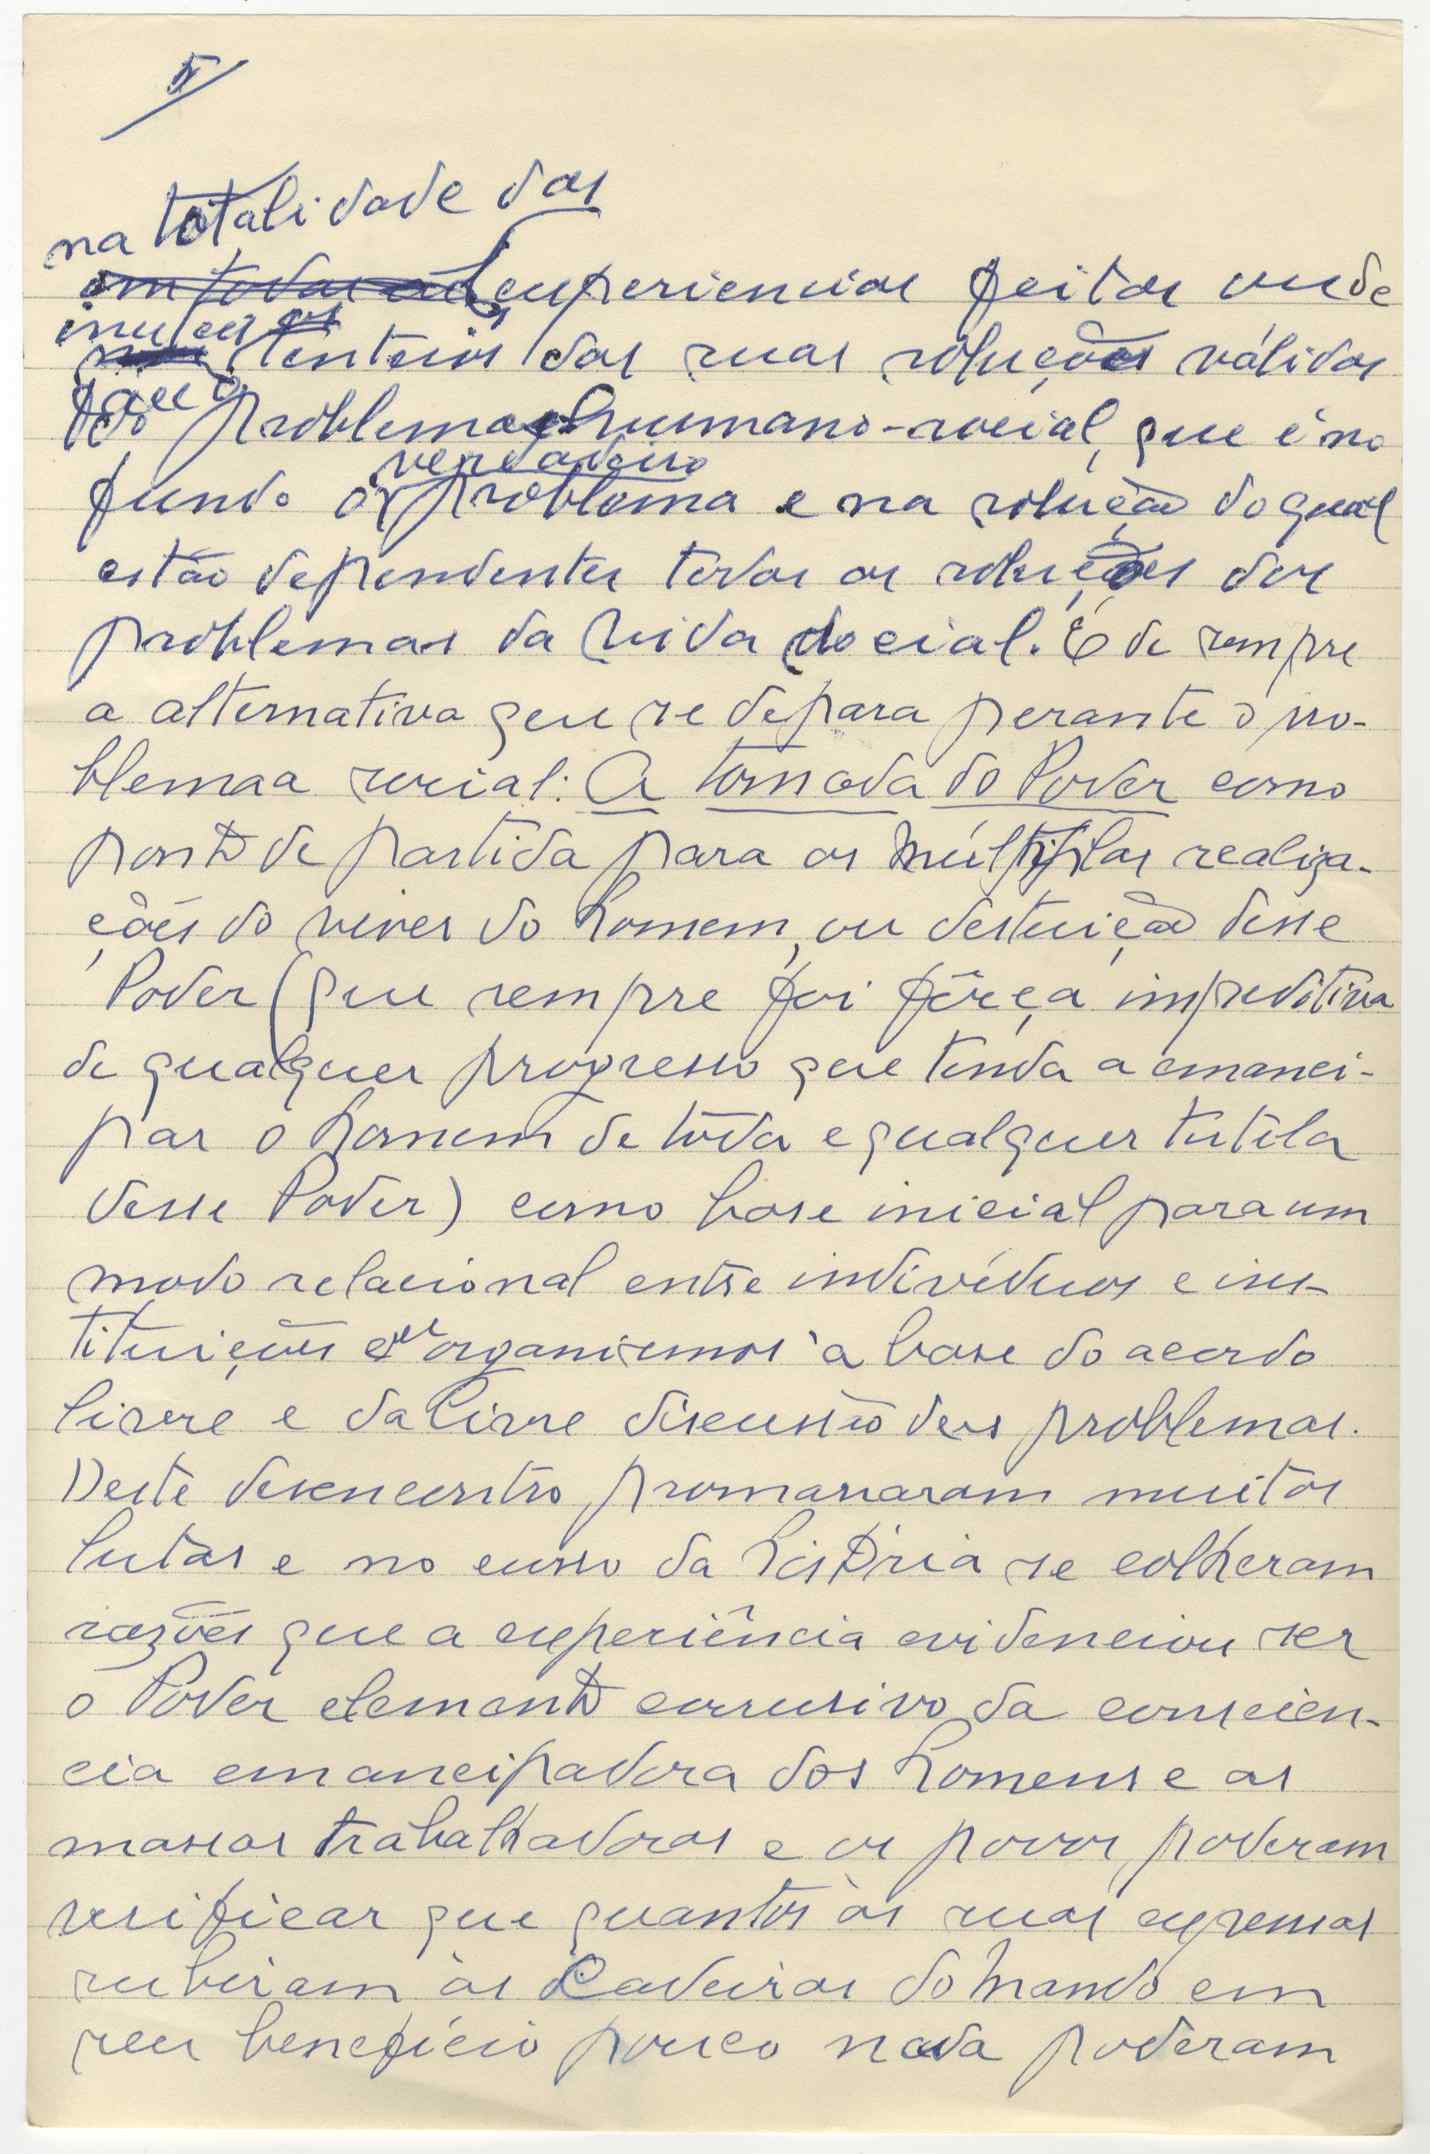 na totalidade das
experiencias feitas onde
tenteios das suas soluções válidas
para o problema humano-social, que é no
fundo o verdadeiro problema e na solução do qual
estão dependentes todas as soluções dos
problemas da vida social. É de sempre
a alternativa que se depara perante o pro-
blemaa social: A tomada do Poder como
ponto de partida para as múltiplas realiza-
ções do viver do homem, ou destruição desse
Poder (que sempre foi fôrça impeditiva
de qualquer progresso que tenda a emanci-
par o homem de tôda e qualquer tutela
desse Poder) como base inicial para um
modo relacional entre indivíduos e ins-
tituições organismos à base do acordo
livre e da livre discussão dos problemas.
Deste desencontro promanaram muitas
lutas e no curso da história se colheram
razões que a experiência evidenciou ser
o Poder elemento corrusivo da conscien-
cia emancipadora dos homens e as
massas trabalhadoras e os povos poderam
verificar que quantos às suas expensas
subiram às Cadeiras do Mando em
seu benefício pouco nada poderam